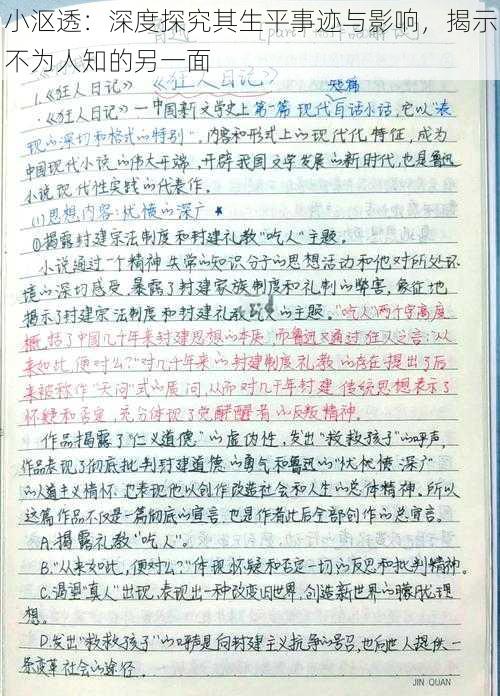 小沤透：深度探究其生平事迹与影响，揭示
不为人知的另一面
1.《狂人日记》 《狂人日记》 短篇
·《狂人日记》—中国新文学史上第一篇现代白话小说，它以"表
现的深切和格式的特别"，内容和形式上的现代化特征，成为
中国现代小说的伟大开端，开辟我国文学发展的新时代，也是鲁迅
小说现代性实践的代表作。
(1)思想内容：忧愤的深广 ★
①揭露封建宗法制度和封建礼教"吃人"主题。
小说通过一个精神失常的知识分子的思想活动和他对所处环
境的深切感受，暴露了封建家族制度和礼制的弊害，象征地
揭示了封建宗法制度和封建礼教吃人的主题。"吃人"两个字高度
概括了中国几千年来封建思想的本质，而鲁迅又通过狂人之言："从
来如此，便对么？"对几千年来的封建制度礼教的存在提出了后
来被称作"天问"式的质问，从而对几千年封建传统思想表示了
怀疑和否定，充分体现了觉醒者的反叛精神。
作品揭露了"仁义道德"的虚伪性，发出"救救孩子"的呼声，
作品表现了彻底批判封建道德的勇气和鲁迅的"忧愤深广"
的人道主义情怀，也表现他以创作改造社会和人生的总体精神。所以
这篇作品不仅是一篇彻底的宣言，也是作者此后全部创作的总宣言。
A.揭露礼教"吃人"。
B."从来如此，便对么？"体现怀疑和否定一切的反思和批判精神。
C.渴望"真人"出现，表现出一种改变旧世界，创造新世界的朦胧理
想。
D.发出"救救孩子"的呼声是向封建主义抗争的号召，也向世人提供一
条变革社会的途径。
JIN QUAN